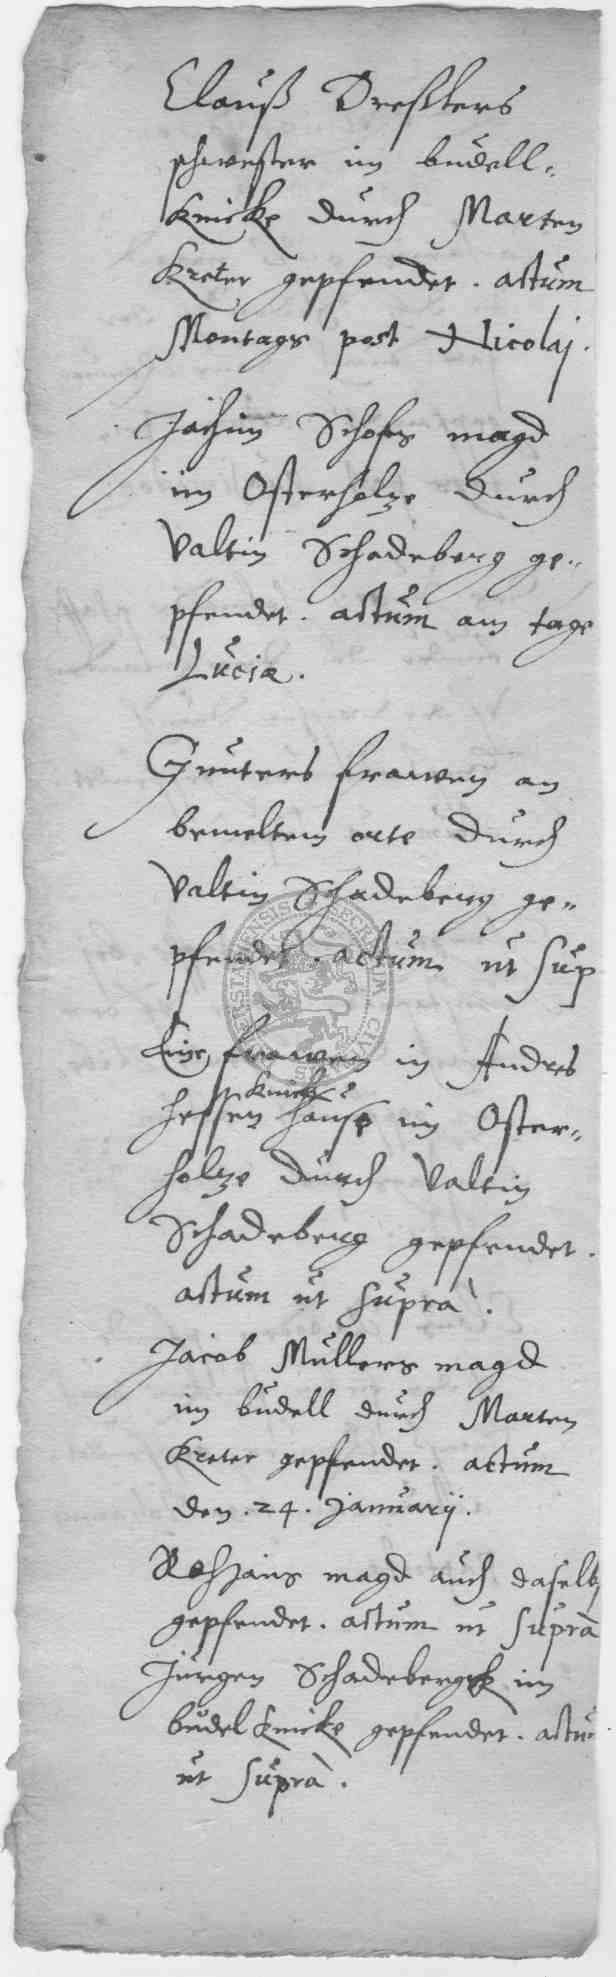 Clauß Dreßkers
schwester im budell-
knicke durch Marten
Kreter gepfendet. actum
Montags post Nicolaj.
Jochim Schofs magd
im Osterholze durch
Valtin Schadeberg ge-
pfendet. actum am tage
Luciæ.
Gunters frawen an
bemeltem orte durch
Valtin Schadeberg ge-
pfendet. actum ut sup
Eine frawen in Andres
knick
Hessen hause im Oster-
holtze durch Valtin
Schadeberg gepfendet.
actum ut supra.
Jacob Mullers magd
im budell durch Marten
Kreter gepfendet. actum
den .24. Januarij.
magd auch daselbs
gepfendet. actum ut supra
Jurgen Schadebergk im
budel knicke gepfendet. actu
ut supra.